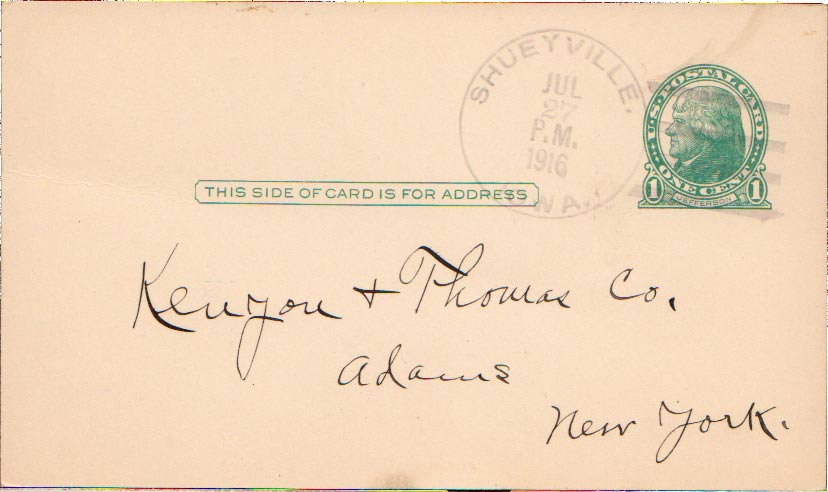 SHUEYVILLE.
JUL
27
P.M.
1916
U.S. POSTAL CARD
ONE CENT
1 1
JEFFERSON
THIS SIDE OF CARD IS FOR ADDRESS
Kenyon + Thomas Co.
Adams
New York.